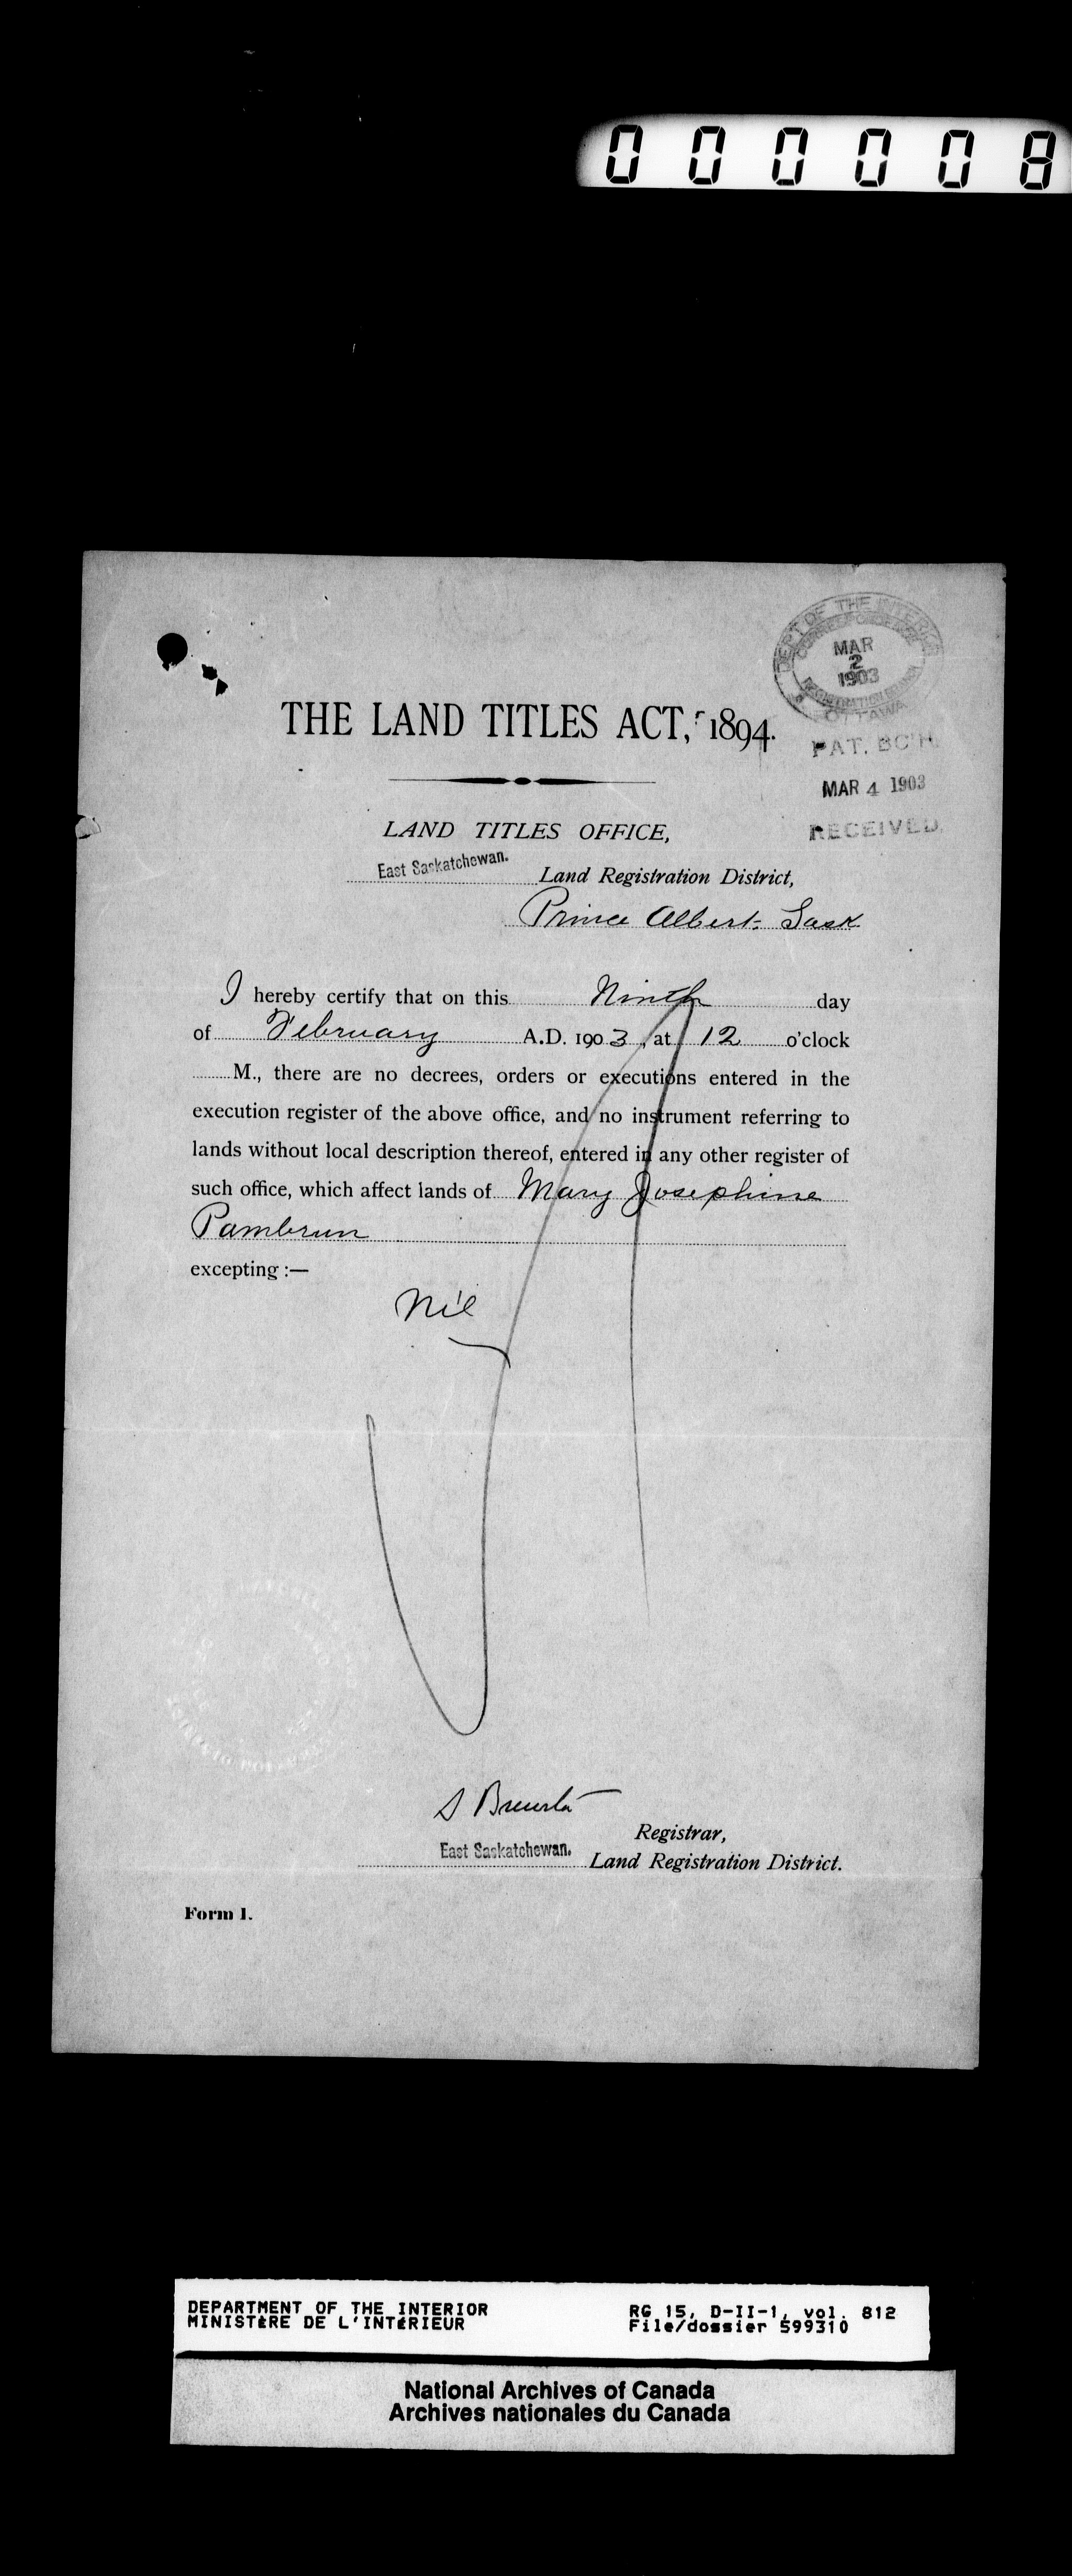 000008
DEPT OF THE INTERIOR
MAR
2
1903
OTTAWA
THE LAND TITLES ACT, 1894.
PAT. BCH.
MAR 4 1903
RECEIVED.
LAND TITLES OFFICE,
East Saskatchewan. Land Registration District,
Prince Albert. Sask
I hereby certify that on this Ninth day
of February A.D. 1903, at 12 o'clock
M., there are no decrees, orders or executions entered in the
execution register of the above office, and no instrument referring to
lands without local description thereof, entered in any other register of
such office, which affect lands of Mary Josephine
Pambrun
excepting :—
Nil
S
Registrar,
East Saskatchewan. Land Registration District.
Form 1.
DEPARTMENT OF THE INTERIOR
MINISTÈRE DE L'INTÉRIEUR
RG 15, D-II-1, vol. 812
File/dossier 599310
National Archives of Canada
Archives nationales du Canada